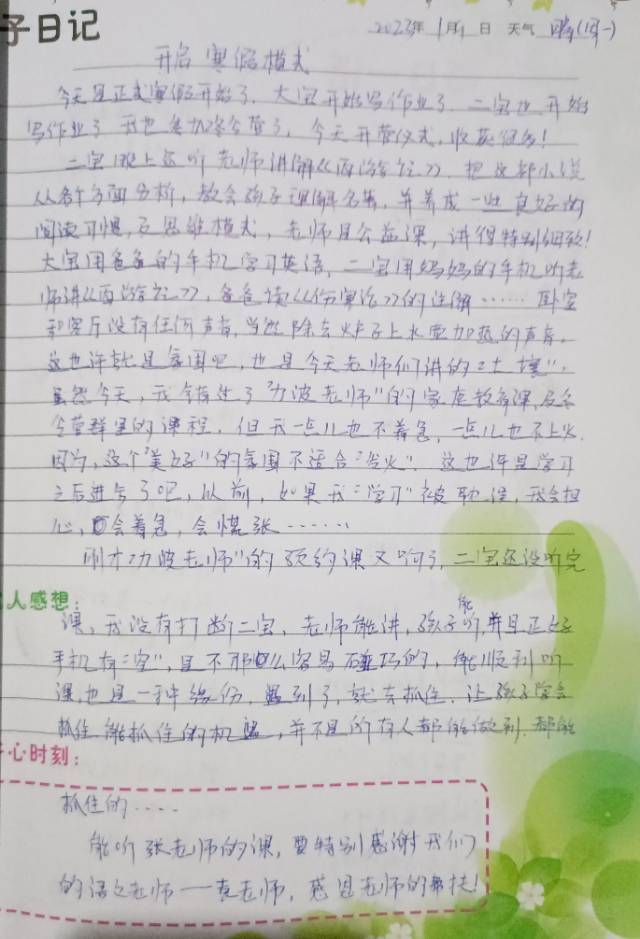 子日记
2023年 1月 1日 天气 晴(周一)
开启寒假模式
今天是正式寒假开始了. 大宝开始写作业了. 二宝也开始
写作业了 我也参加冬令营了, 今天开营仪式, 收获很多!
二宝晚上还听老师讲解《西游记》, 把这部小说
从各个方面分析, 教会孩子理解名著, 并养成一些良好的
阅读习惯, 及思维模式, 老师是公益课, 讲得特别细致!
大宝用爸爸的手机学习英语, 二宝用妈妈的手机听老
师讲《西游记》, 爸爸读《伤寒论》的注解…… 卧室
和客厅没有任何声音, 当然除去炉子上水壶加热的声音.
这也许就是氛围吧, 也是今天老师们讲的"土壤".
虽然今天, 我错失了"力波老师"的家庭教育课, 及冬
令营群里的课程. 但我一点儿也不着急, 一点儿也不上火.
因为, 这个"美好"的氛围不适合"发火". 这也许是学习
之后进步了吧, 以前, 如果我"学习"被耽误, 我会担
心, 会着急, 会慌张……
刚才"力波老师"的预约课又响了, 二宝还没听完
人感想:
课, 我没有打断二宝, 老师能讲, 孩子能听, 并且正好
手机有"空", 是不那么容易碰巧的, 能顺利听
课也是一种缘份, 遇到了, 就去抓住, 让孩子学会
抓住能抓住的机遇, 并不是所有人都能做到, 都能
心时刻:
抓住的……
能听张老师的课, 要特别感谢我们
的语文老师——袁老师, 感恩老师的帮扶!